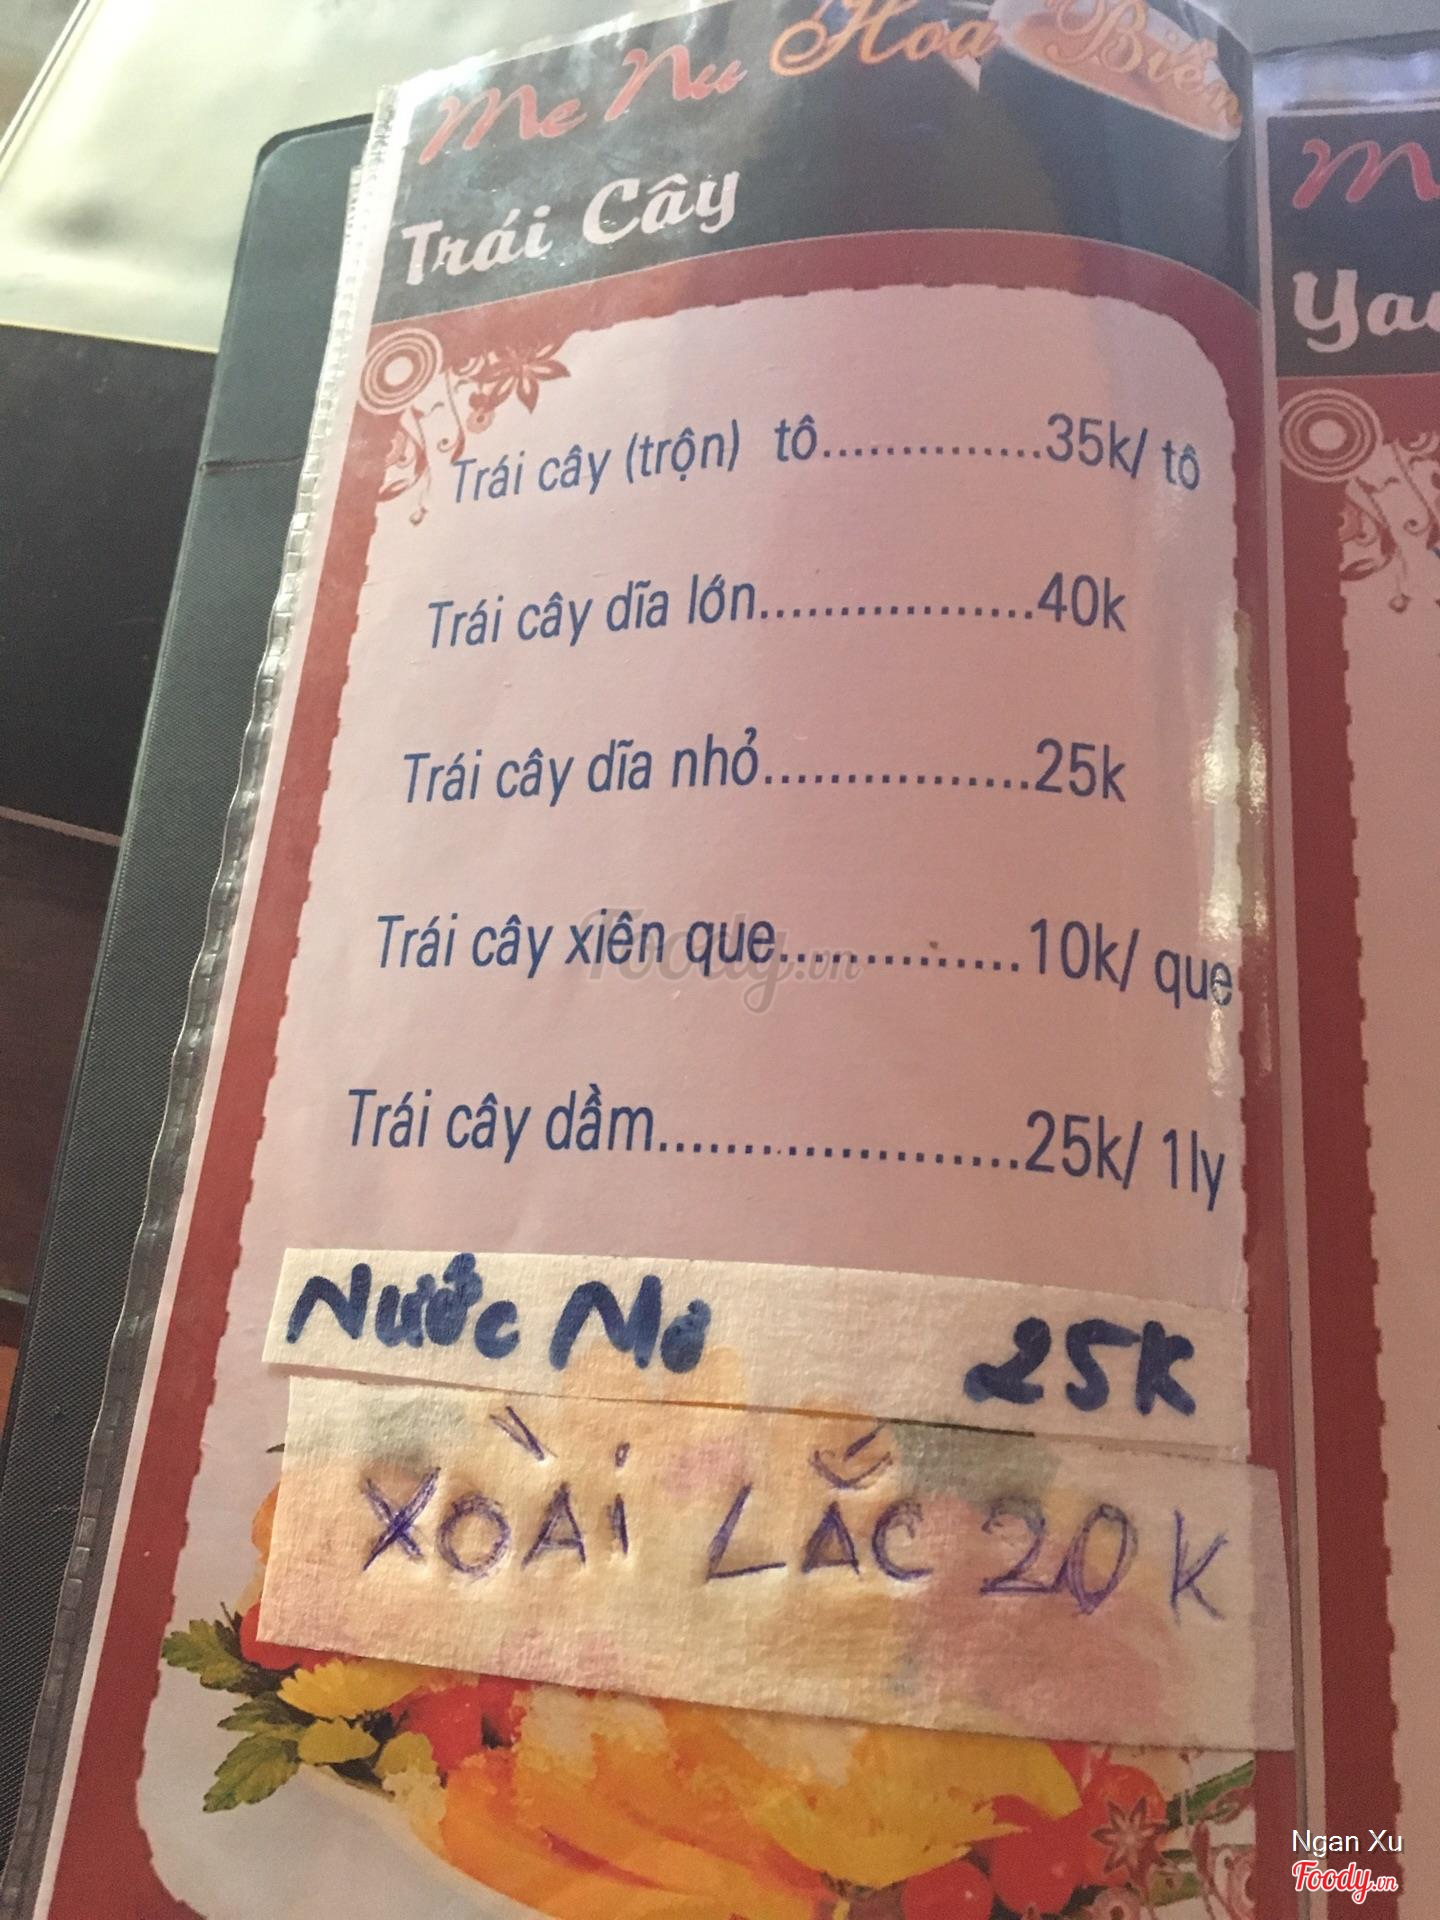 Me Nu Hoa Biển
Trái Cây
Trái cây (trộn) tô..............35k/ tô
Trái cây dĩa lớn.................40k
Trái cây dĩa nhỏ.................25k
Trái cây xiên que...............10k/ que
Trái cây dầm......................25k/ 1ly
Nước Mơ 25K
XOÀI LẮC 20K
Foody.vn
Ngan Xu
Foody.vn